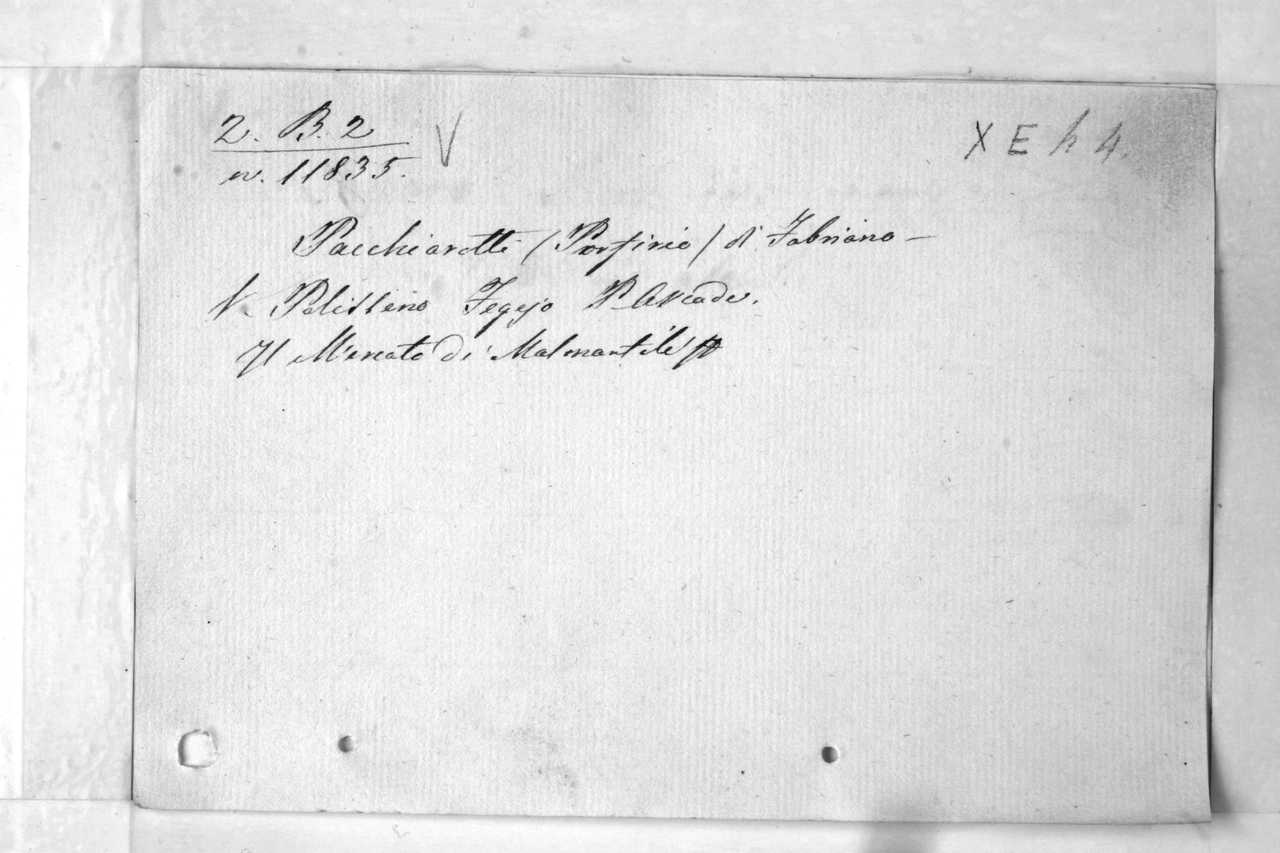 2. B. 2 V X E h 4.
n. 11835.
Pacchiarotti (Porfirio) di Fabriano —
V. Polisseno Fegejo P. Arcade.
Il Mercato di Malmantile